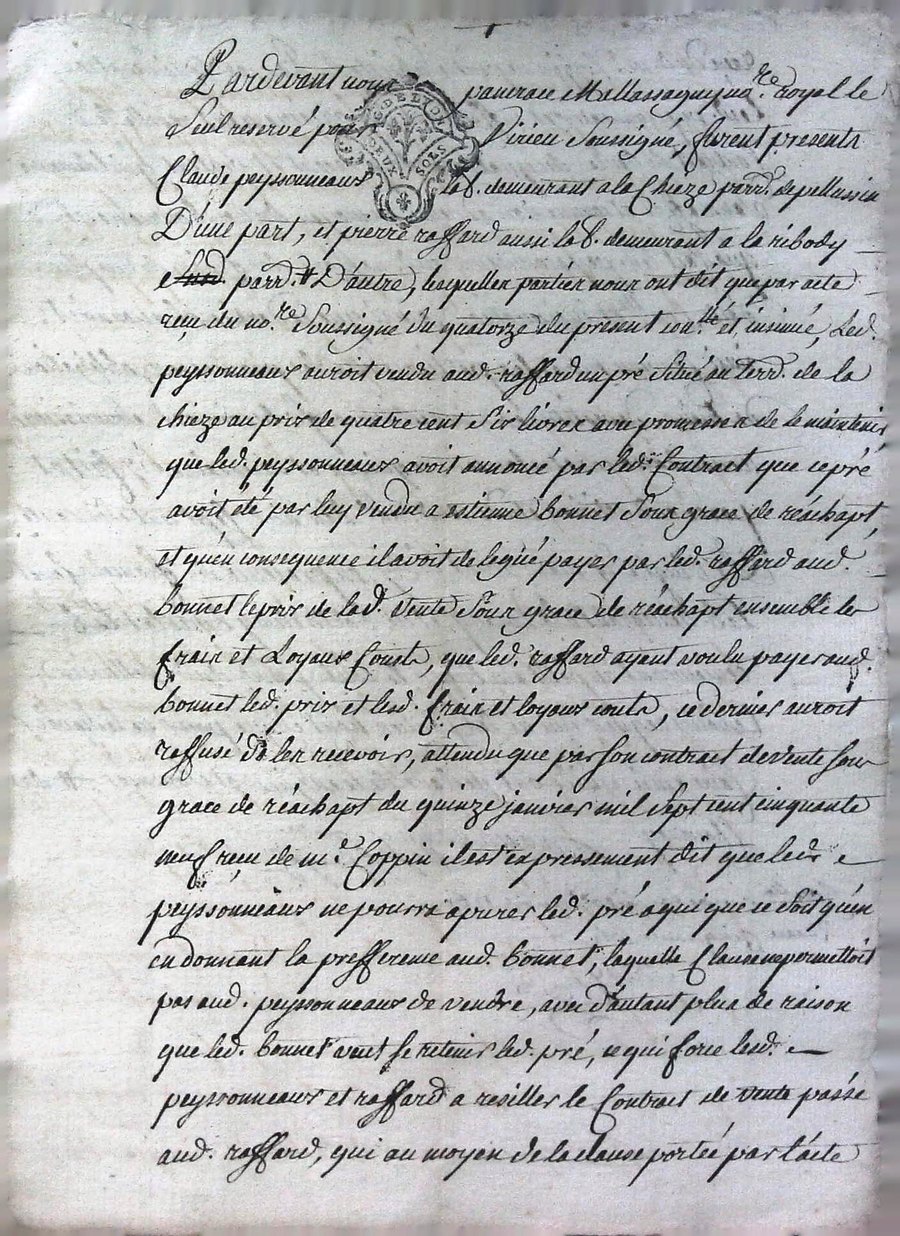 Pardevant nous pancrace Mallassagny no.re royal le
Seul reservé pour Virieu Soussigné, furent presents
Claude peyssonneaux lab. demeurant a la Chieze parr.e de pellussin
D'une part, et pierre raffard aussi lab. demeurant a la ribody
parr.e D'autre, lesquelles parties nous ont dit que par acte
reçu du no.re Soussigné du quatorze du present con.llé et insinué, Led.
peyssonneaux auroit vendu aud. raffard un pré Situé au terr.e de la
chieze au prix de quatre cent Six livres avec promesse de le maintenir
que led. peyssonneaux avoit annoncé par led. Contract que ce pré
avoit été par luy vendu a estienne bonnet Sous grace de réachapt,
et qu'en consequence il avoit delegué payer par led. raffard aud.
bonnet le prix de lad. vente Sous grace de réachapt ensemble les
frais et Loyaux Couts, que led. raffard ayant voulu payer aud.
bonnet led. prix et lesd. frais et loyaux couts, ce dernier auroit
reffusé de les recevoir, attendu que par Son contract de vente Sous
grace de réachapt du quinze janvier mil Sept cent cinquante
neuf reçu de m.e Coppin il est expressement dit que led.
peyssonneaux ne pourra apurer led. pré a qui que ce Soit qu'en
en donnant la prefference aud. bonnet, laquelle Clause ne permettoit
pas aud. peyssonneaux de vendre, avec d'autant plus de raison
que led. bonnet veut Se retenir led. pré, ce qui force lesd.
peyssonneaux et raffard a resilier le Contract de vente passé
aud. raffard, qui au moyen de la clause portée par l'acte
DEUX SOLS